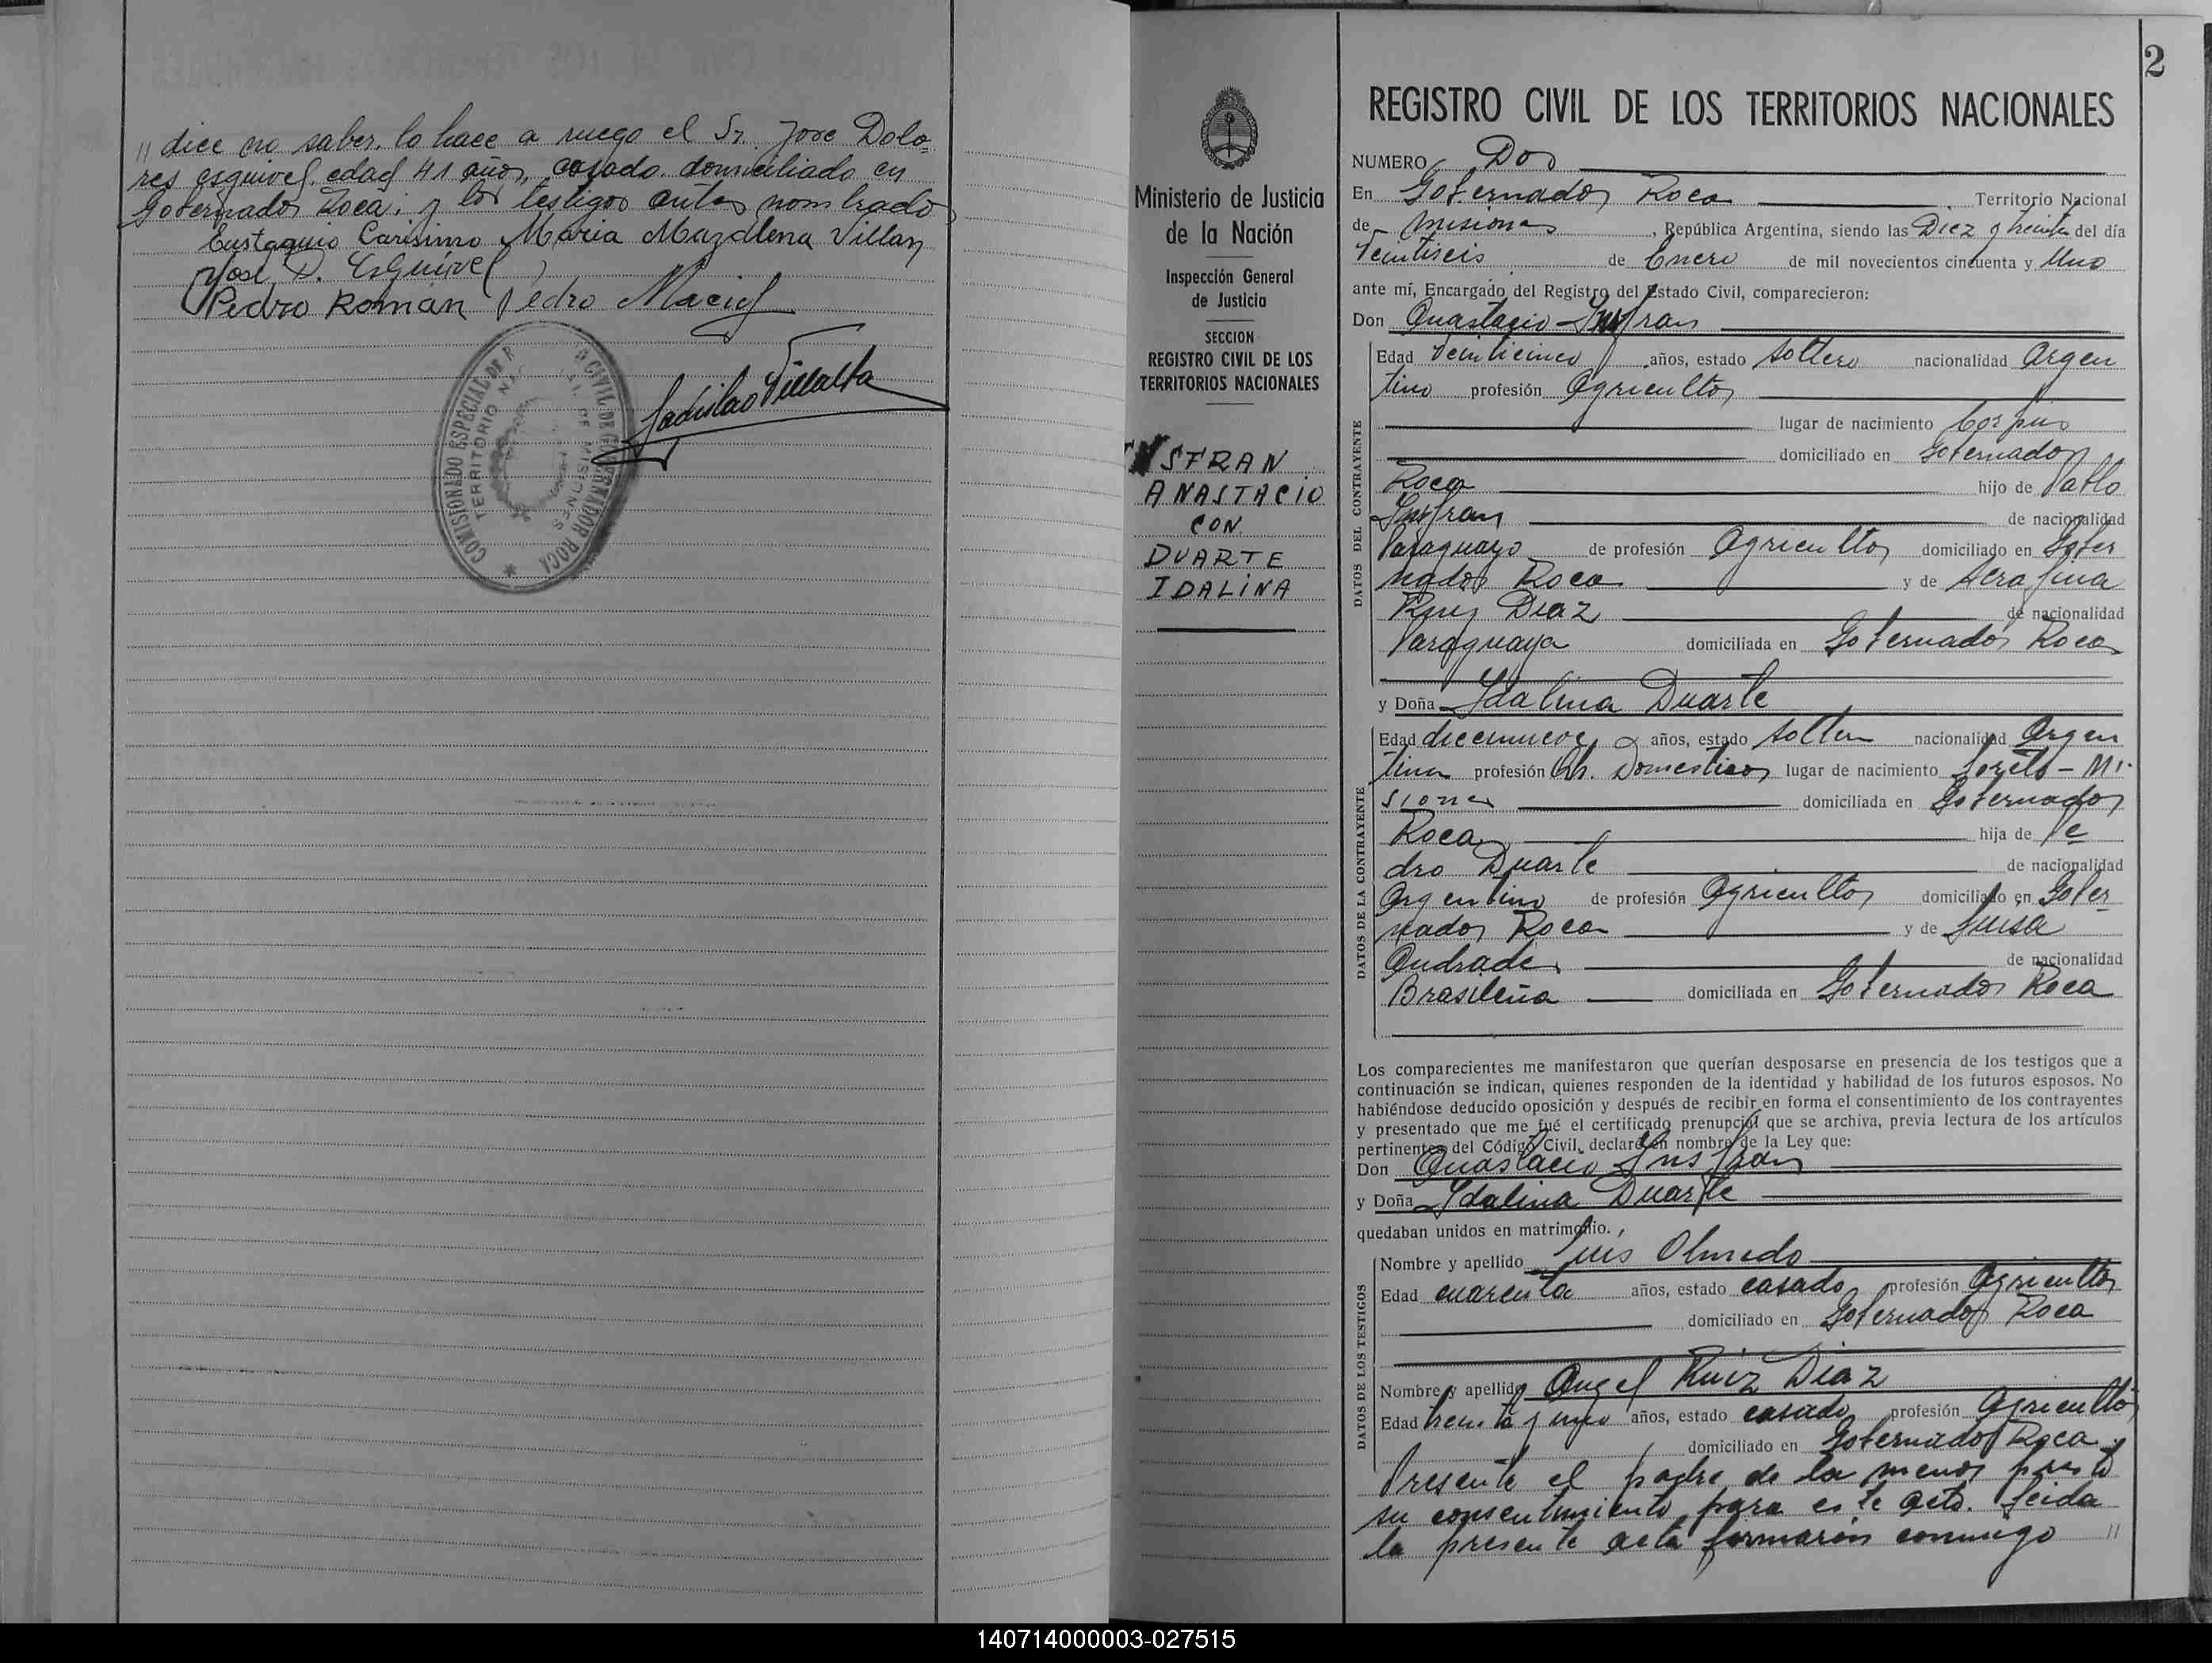 " dice no saber. lo hace a ruego el Sr. Jose Dolo-
res esquivel. edad 41 años, casado. domiciliado en
Gobernador Roca; y los testigos antes nombrado
Eustaquio Carisimo Maria Magdlena Villan
José D. Esquivel
Pedro Roman Pedro Maciel
Ladislao Villalta
COMISIONADO ESPECIAL DE R
O CIVIL DE GOBERNADOR ROCA
TERRITORIO N
DE MISIONES
2
Ministerio de Justicia
de la Nación
Inspección General
de Justicia
SECCION
REGISTRO CIVIL DE LOS
TERRITORIOS NACIONALES
INSFRAN
ANASTACIO
CON
DUARTE
IDALINA
REGISTRO CIVIL DE LOS TERRITORIOS NACIONALES
NUMERO Dos
En Gobernador Roca Territorio Nacional
de Misiones, República Argentina, siendo las Diez y treinta del día
Veintiseis de Enero de mil novecientos cincuenta y Uno
ante mí, Encargado del Registro del Estado Civil, comparecieron:
Don Anastacio Insfran
DATOS DEL CONTRAYENTE
Edad Veinticinco años, estado soltero nacionalidad Argen
tino profesión Agricultor
lugar de nacimiento Corpus
domiciliado en Gobernador
Roca hijo de Pablo
Insfran de nacionalidad
Paraguayo de profesión Agricultor domiciliado en Gober
nador Roca y de Serafina
Ruiz Diaz de nacionalidad
Paraguaya domiciliada en Gobernador Roca
y Doña Idalina Duarte
DATOS DE LA CONTRAYENTE
Edad diecinueve años, estado soltera nacionalidad Argen
tina profesión Qh. Domesticos lugar de nacimiento Loreto - Mi
siones domiciliada en Gobernador
Roca hija de Pe
dro Duarte de nacionalidad
Argentino de profesión Agricultor domiciliado en Gober
nador Roca y de Luisa
Andrade de nacionalidad
Brasileña domiciliada en Gobernador Roca
Los comparecientes me manifestaron que querían desposarse en presencia de los testigos que a
continuación se indican, quienes responden de la identidad y habilidad de los futuros esposos. No
habiéndose deducido oposición y después de recibir en forma el consentimiento de los contrayentes
y presentado que me fué el certificado prenupcial que se archiva, previa lectura de los artículos
pertinentes del Código Civil, declaré en nombre de la Ley que:
Don Anastacio Insfran
y Doña Idalina Duarte
quedaban unidos en matrimonio.
DATOS DE LOS TESTIGOS
Nombre y apellido Luis Olmedo
Edad cuarenta años, estado casado profesión Agricultor
domiciliado en Gobernador Roca
Nombre y apellido Angel Ruiz Diaz
Edad treinta y uno años, estado casado profesión Agricultor
domiciliado en Gobernador Roca.
Presente el padre de la menor presto
su consentimiento para este acto. Leida
la presente acta firmaron conmigo "
140714000003-027515